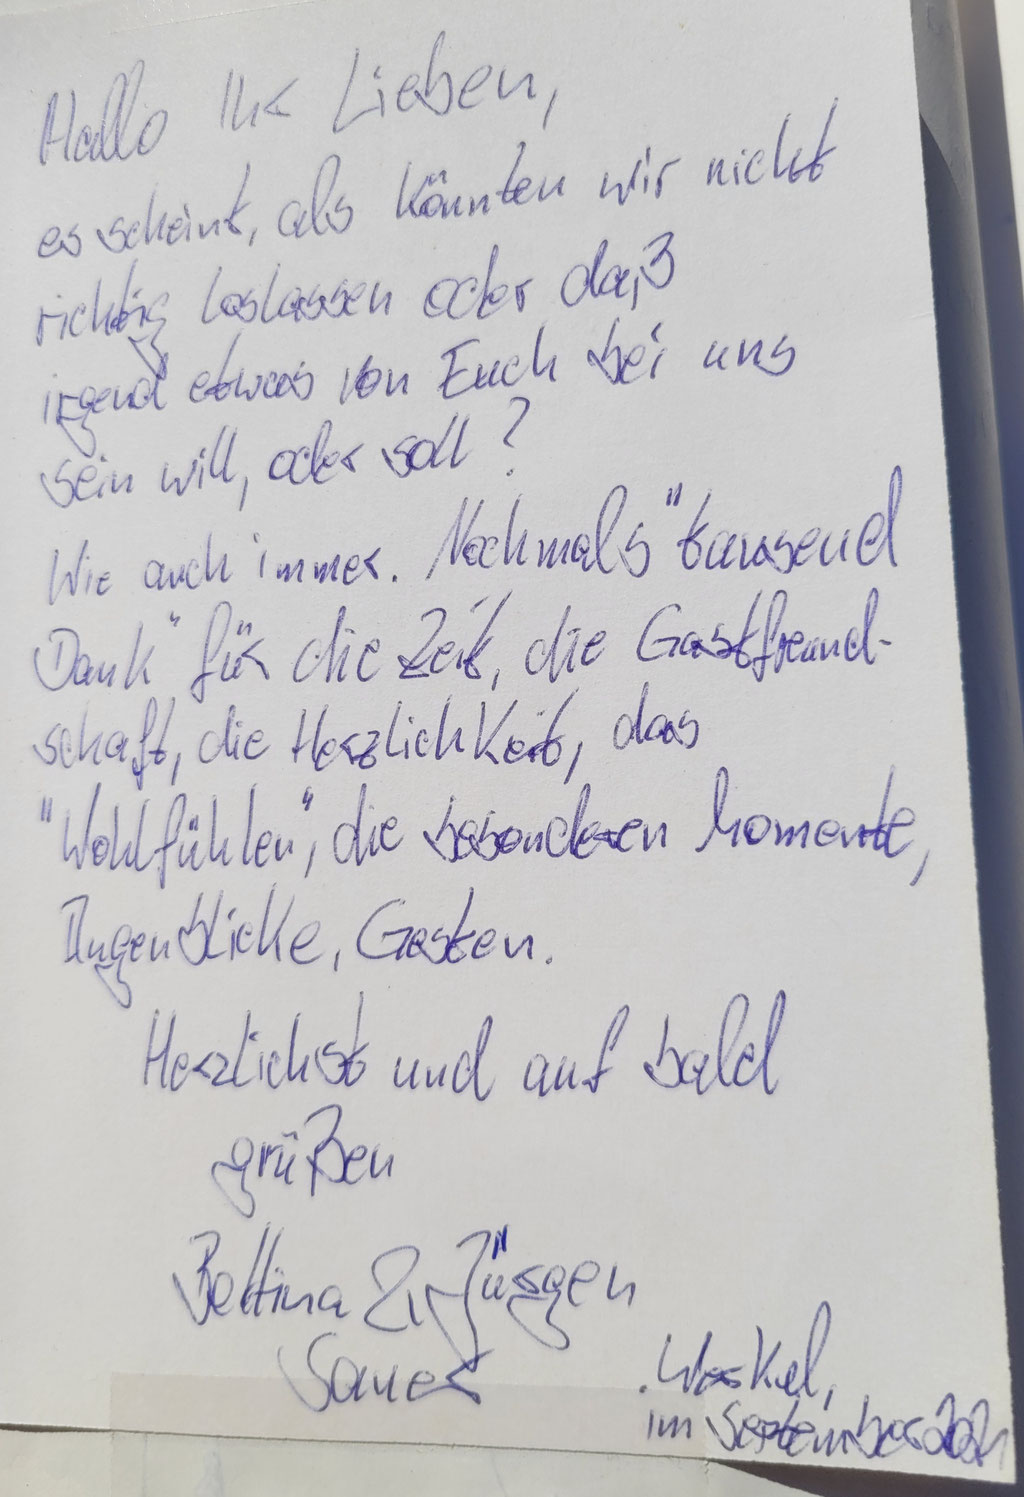 Hallo Ihr Lieben,
es scheint, als könnten wir nicht
richtig loslassen oder daß
irgend etwas von Euch bei uns
sein will, oder soll?
Wie auch immer. Nochmals "tausend
Dank" für die Zeit, die Gastfreund-
schaft, die Herzlichkeit, das
"Wohlfühlen", die besonderen Momente,
Augenblicke, Gesten.
Herzlichst und auf bald
grüßen
Bettina & Jürgen
Sauer
im September 2021